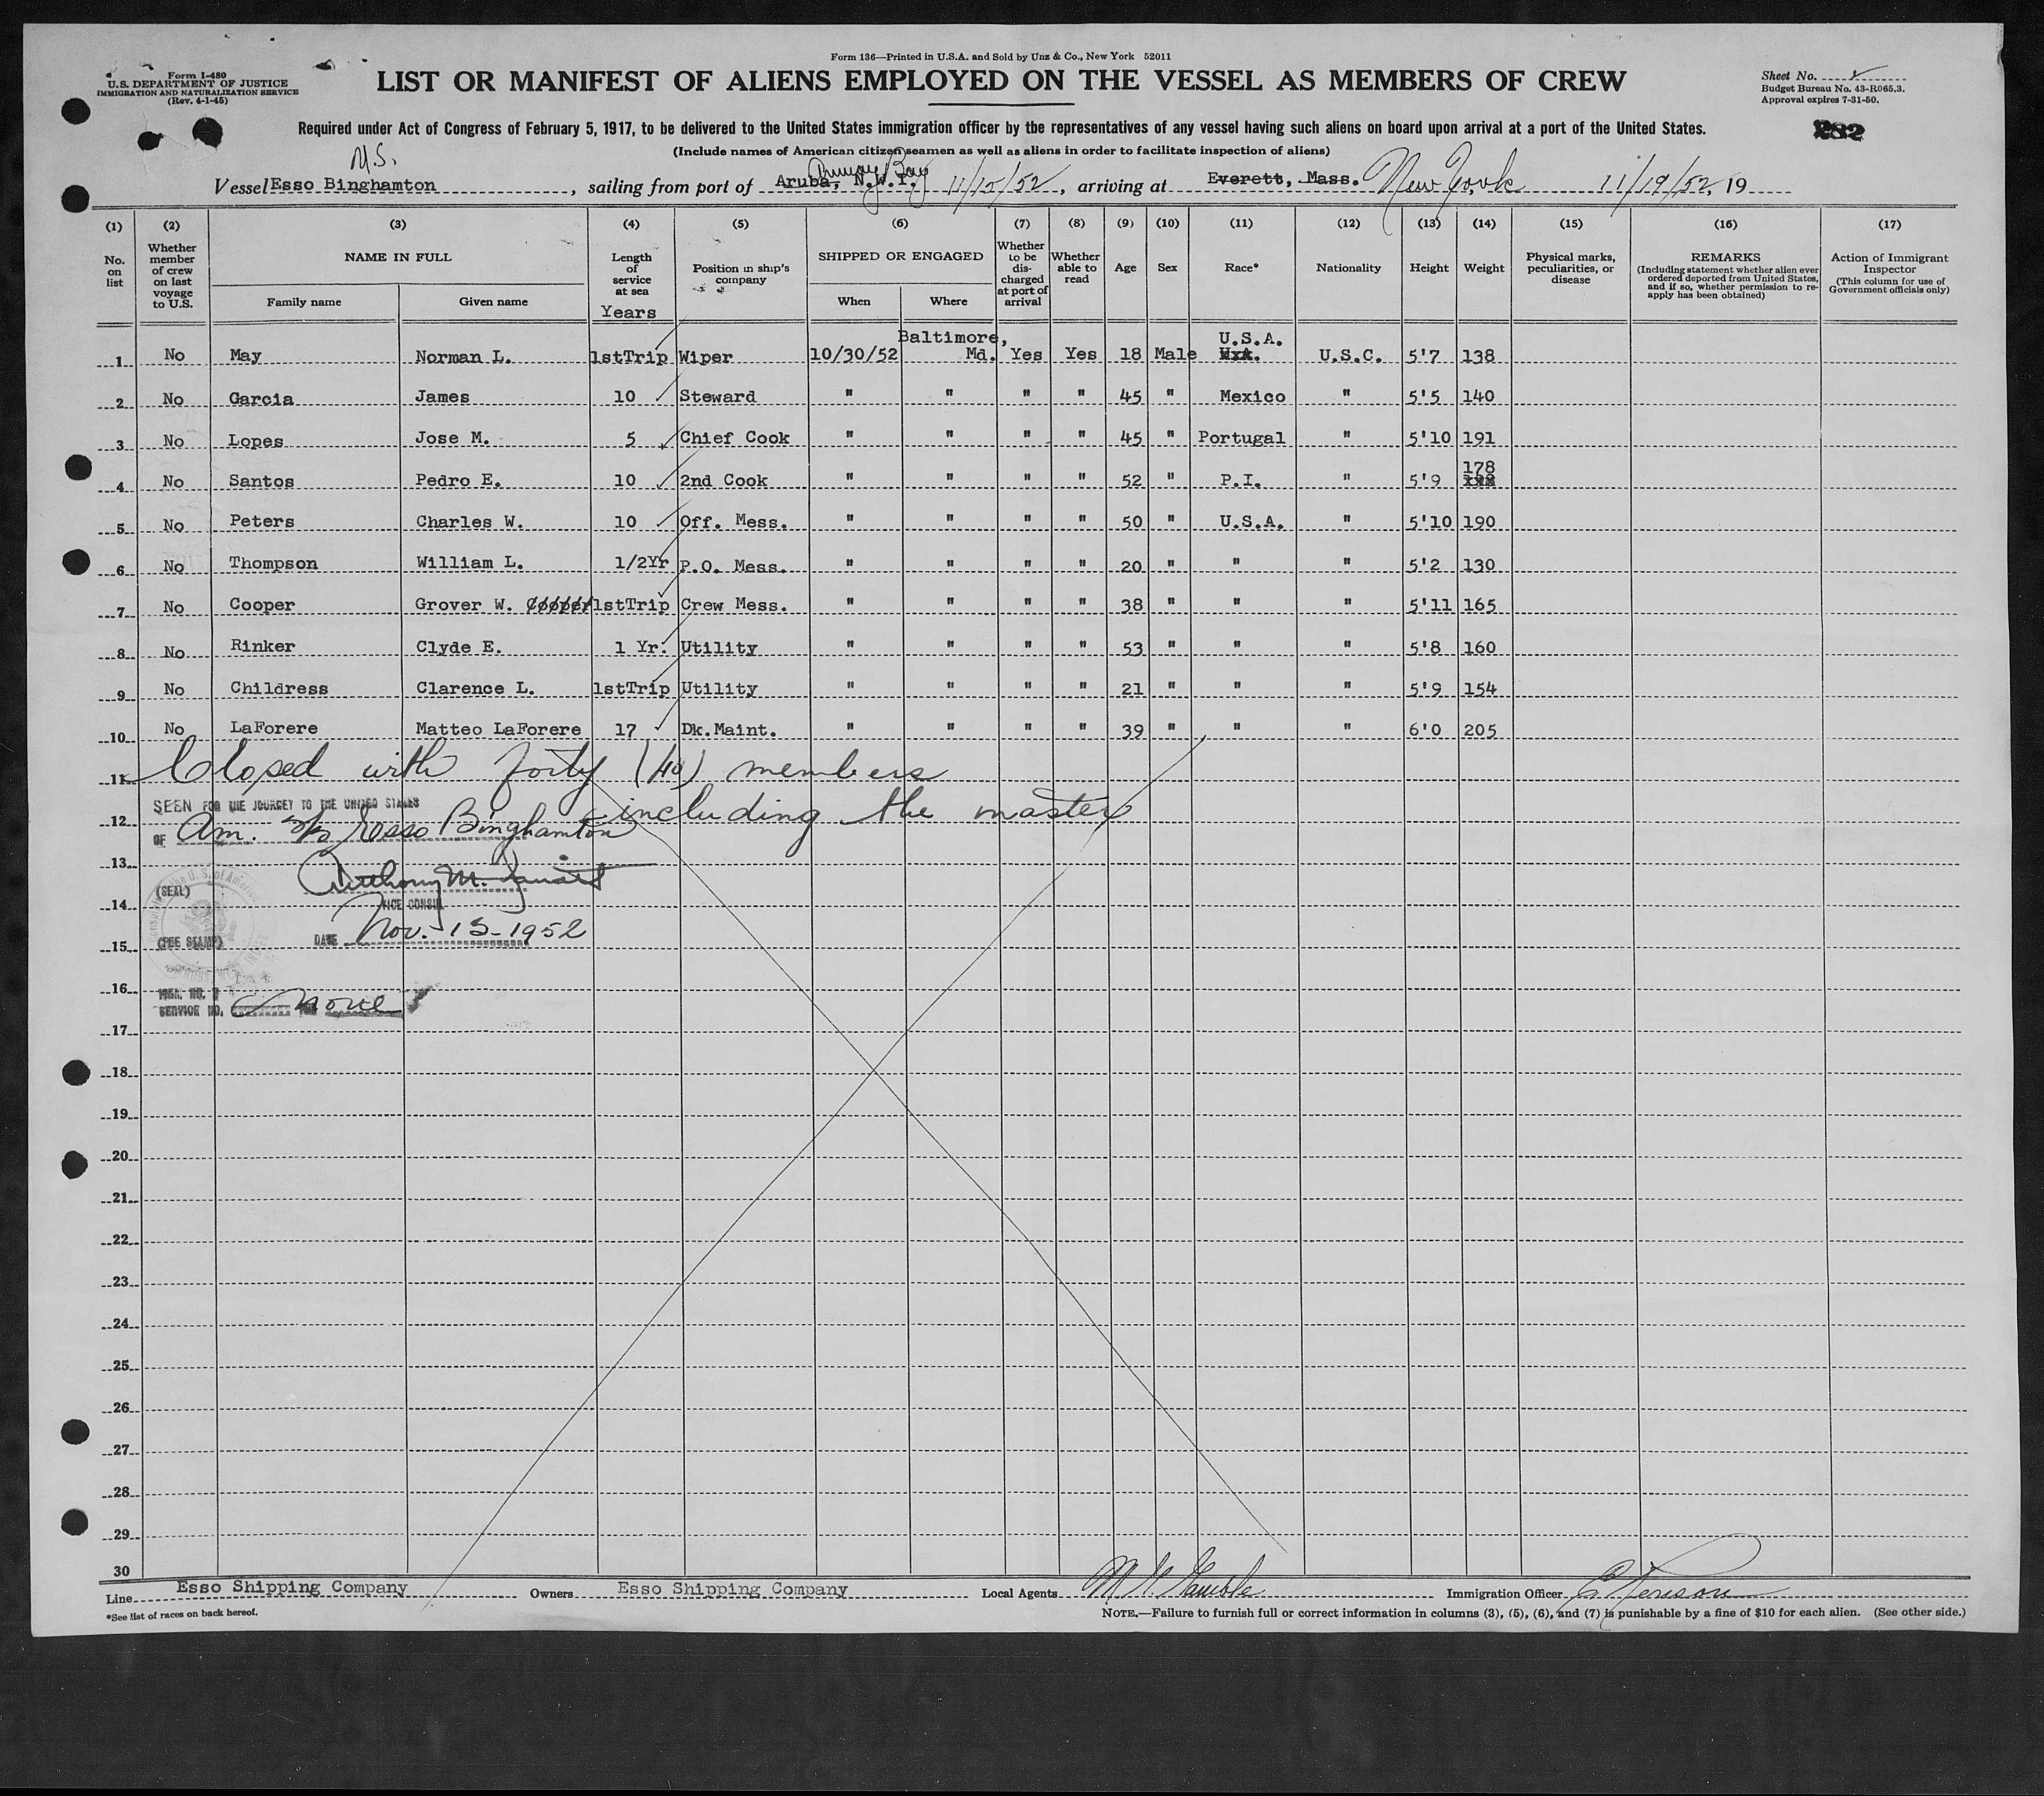 Form 136—Printed in U.S.A. and Sold by Unz & Co., New York 52011
Form I-480
U.S. DEPARTMENT OF JUSTICE
IMMIGRATION AND NATURALIZATION SERVICE
(Rev. 4-1-45)
LIST OR MANIFEST OF ALIENS EMPLOYED ON THE VESSEL AS MEMBERS OF CREW
Sheet No.
Budget Bureau No. 43-R065.3.
Approval expires 7-31-50.
Required under Act of Congress of February 5, 1917, to be delivered to the United States immigration officer by the representatives of any vessel having such aliens on board upon arrival at a port of the United States.
282
(Include names of American citizen seamen as well as aliens in order to facilitate inspection of aliens)
M.S.
Vessel Esso Binghamton, sailing from port of Aruba, N.W.I. Bay 11/15/52, arriving at Everett, Mass. New York 11/19/52, 19
(1) (2) (3) (4) (5) (6) (7) (8) (9) (10) (11) (12) (13) (14) (15) (16) (17)
No. on list
Whether member of crew on last voyage to U.S.
NAME IN FULL
Family name
Given name
Length of service at sea
Years
Position in ship's company
SHIPPED OR ENGAGED
When
Where
Whether to be discharged at port of arrival
Whether able to read
Age
Sex
Race*
Nationality
Height
Weight
Physical marks, peculiarities, or disease
REMARKS
(Including statement whether alien ever ordered deported from United States, and if so, whether permission to reapply has been obtained)
Action of Immigrant Inspector
(This column for use of Government officials only)
1 No May Norman L. 1stTrip Wiper 10/30/52 Baltimore, Md. Yes Yes 18 Male U.S.A. U.S.C. 5'7 138
2 No Garcia James 10 Steward " " " " 45 " Mexico " 5'5 140
3 No Lopes Jose M. 5 Chief Cook " " " " 45 " Portugal " 5'10 191
4 No Santos Pedro E. 10 2nd Cook " " " " 52 " P.I. " 5'9 178
5 No Peters Charles W. 10 Off. Mess. " " " " 50 " U.S.A. " 5'10 190
6 No Thompson William L. 1/2Yr P.O. Mess. " " " " 20 " " " 5'2 130
7 No Cooper Grover W. Cooper 1stTrip Crew Mess. " " " " 38 " " " 5'11 165
8 No Rinker Clyde E. 1 Yr. Utility " " " " 53 " " " 5'8 160
9 No Childress Clarence L. 1stTrip Utility " " " " 21 " " " 5'9 154
10 No LaForere Matteo LaForere 17 Dk.Maint. " " " " 39 " " " 6'0 205
11 Closed with forty (40) members
SEEN FOR THE JOURNEY TO THE UNITED STATES
including the master
12
OF Am. Esso Binghamton
13
Anthony M.
(SEAL)
14
VICE CONSUL
15
(FEE STAMP)
DATE Nov. 13-1952
16
SERVICE NO. none
17
18
19
20
21
22
23
24
25
26
27
28
29
30
Line Esso Shipping Company Owners Esso Shipping Company Local Agents Immigration Officer
*See list of races on back hereof.
NOTE.—Failure to furnish full or correct information in columns (3), (5), (6), and (7) is punishable by a fine of $10 for each alien. (See other side.)